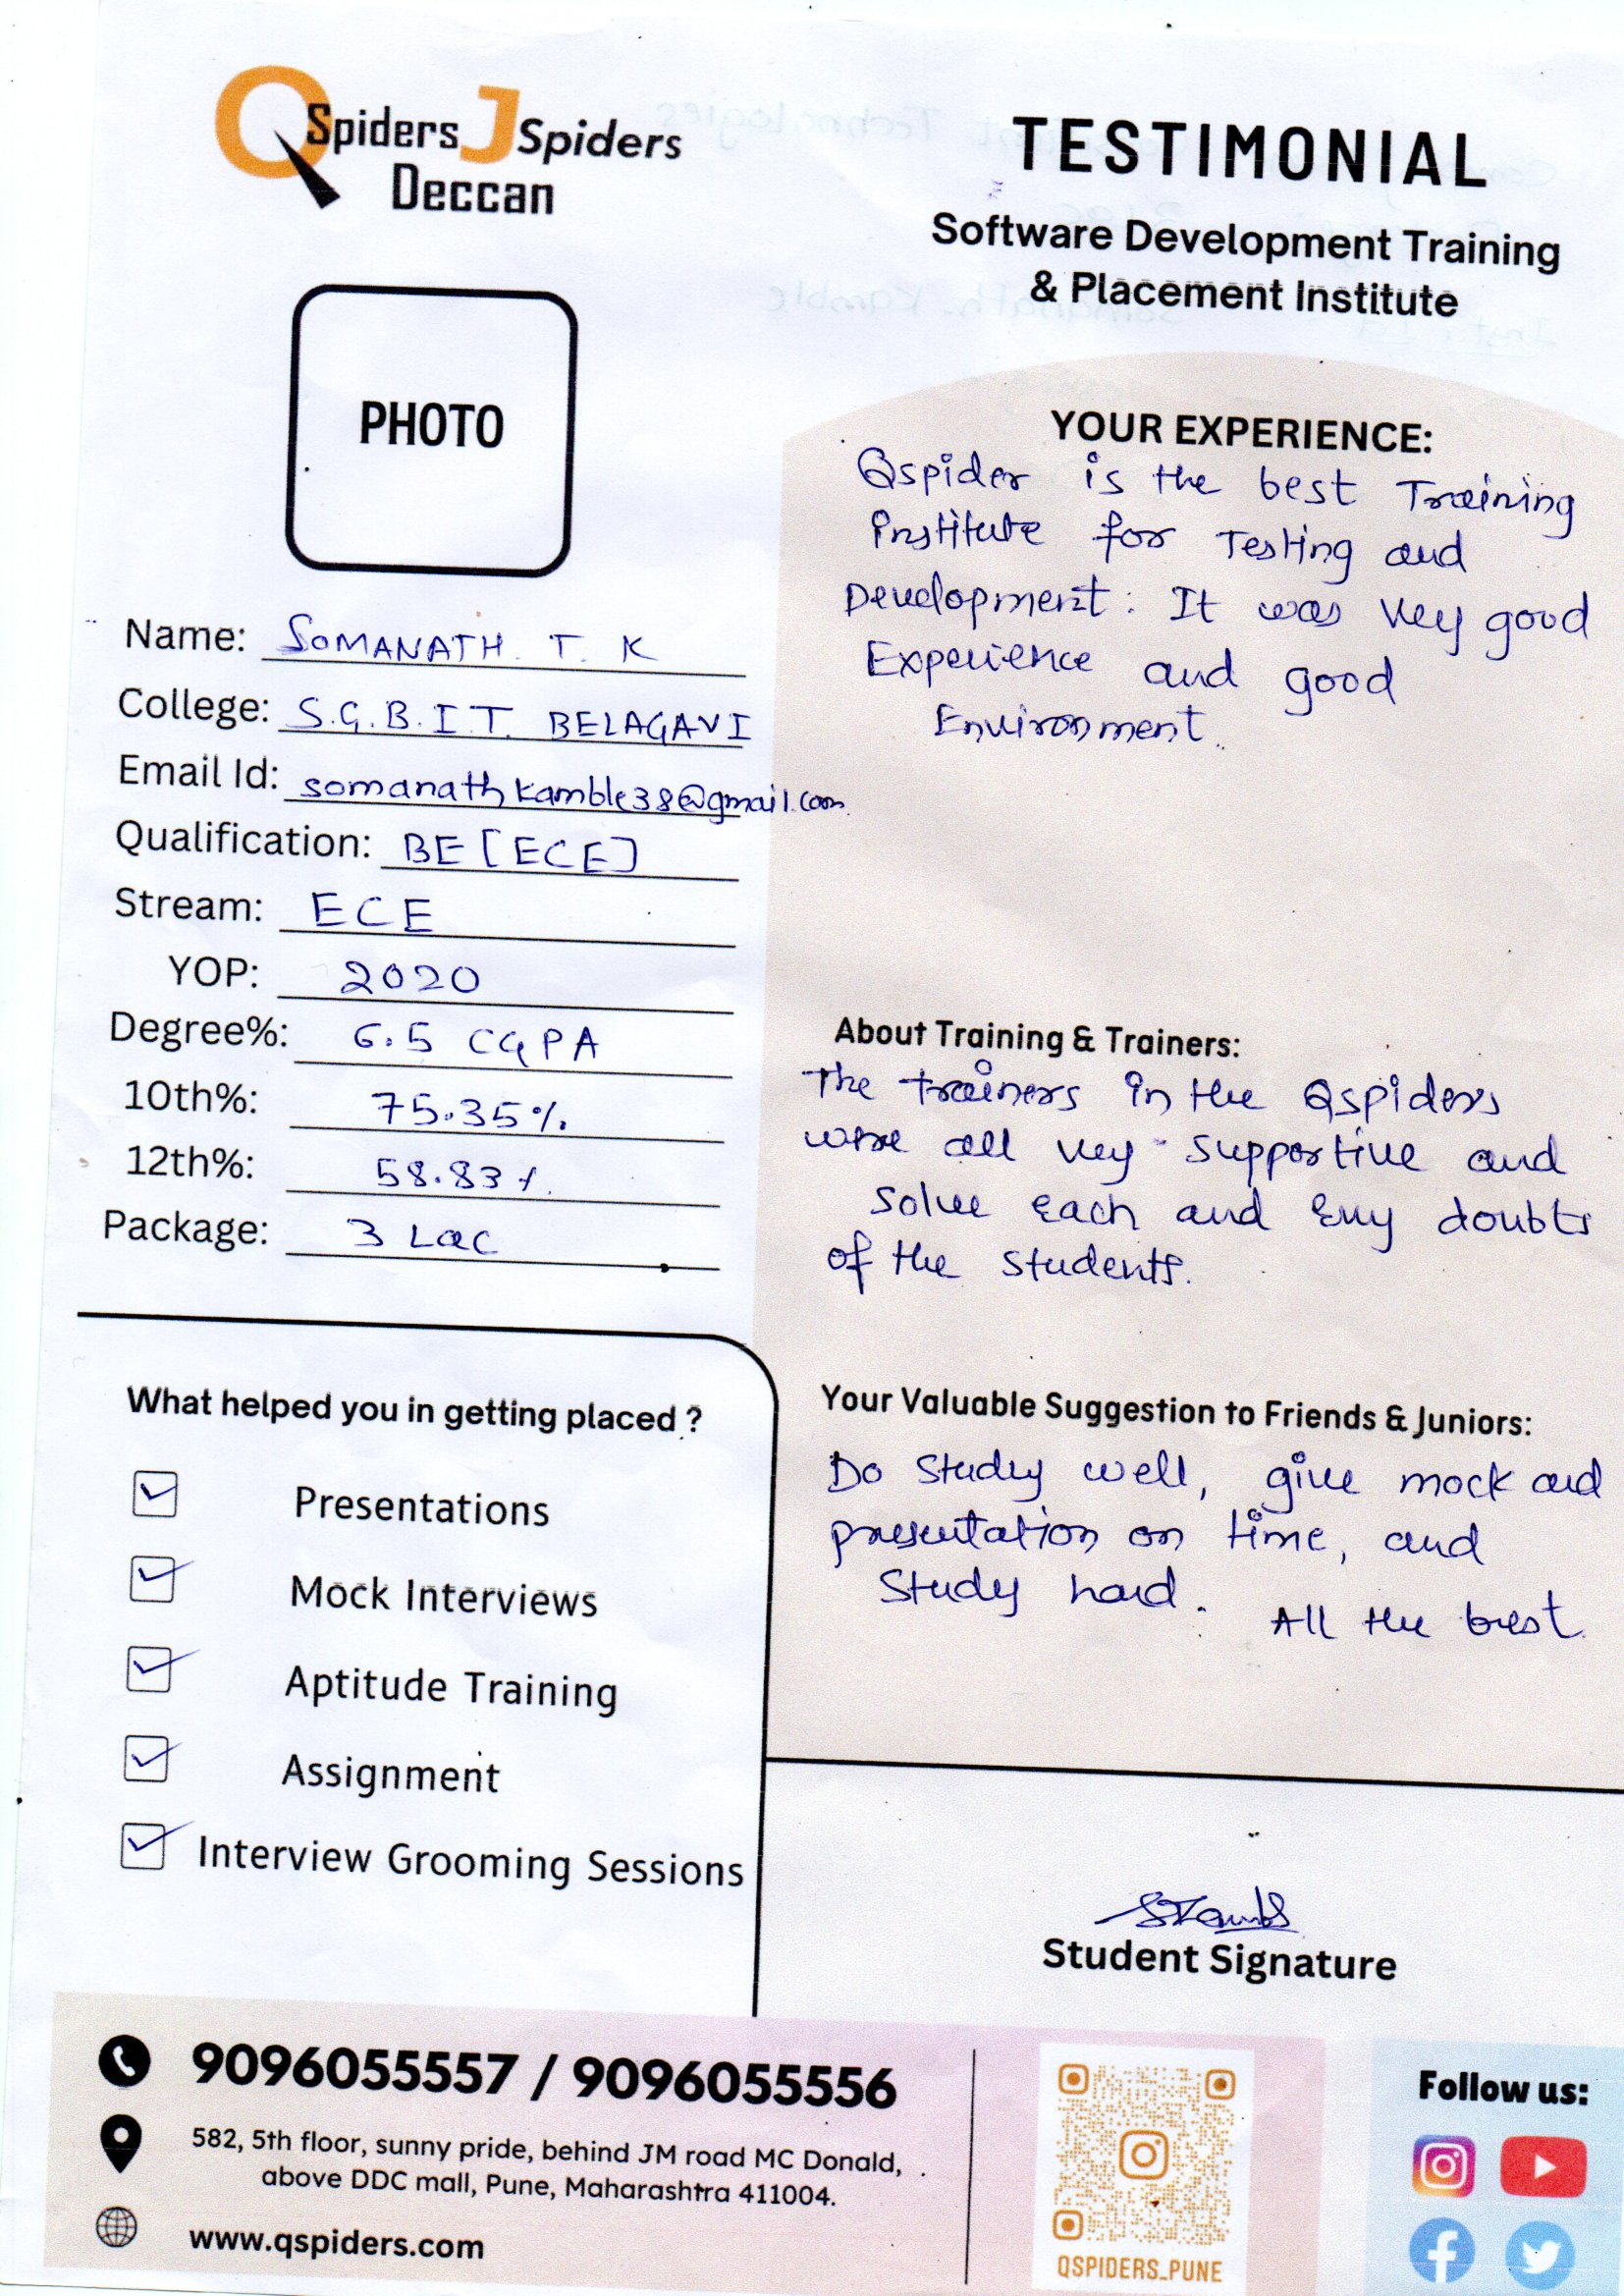 QSpiders JSpiders
Deccan
TESTIMONIAL
Software Development Training
& Placement Institute
PHOTO
Name: SOMANATH. T. K
College: S.G.B.I.T. BELAGAVI
Email Id: somanathkamble38@gmail.com
Qualification: BE [ECE]
Stream: ECE
YOP: 2020
Degree%: 6.5 CGPA
10th%: 75.35%
12th%: 58.83%
Package: 3 Lac
What helped you in getting placed ?
Presentations
Mock Interviews
Aptitude Training
Assignment
Interview Grooming Sessions
YOUR EXPERIENCE:
Qspider is the best Training
institute for Testing and
Development. It was very good
Experience and good
Environment.
About Training & Trainers:
The trainers in the Qspiders
were all very supportive and
solve each and every doubts
of the students.
Your Valuable Suggestion to Friends & Juniors:
Do study well, give mock and
presentation on time, and
Study hard. All the best.
Student Signature
9096055557 / 9096055556
582, 5th floor, sunny pride, behind JM road MC Donald,
above DDC mall, Pune, Maharashtra 411004.
www.qspiders.com
QSPIDERS_PUNE
Follow us: